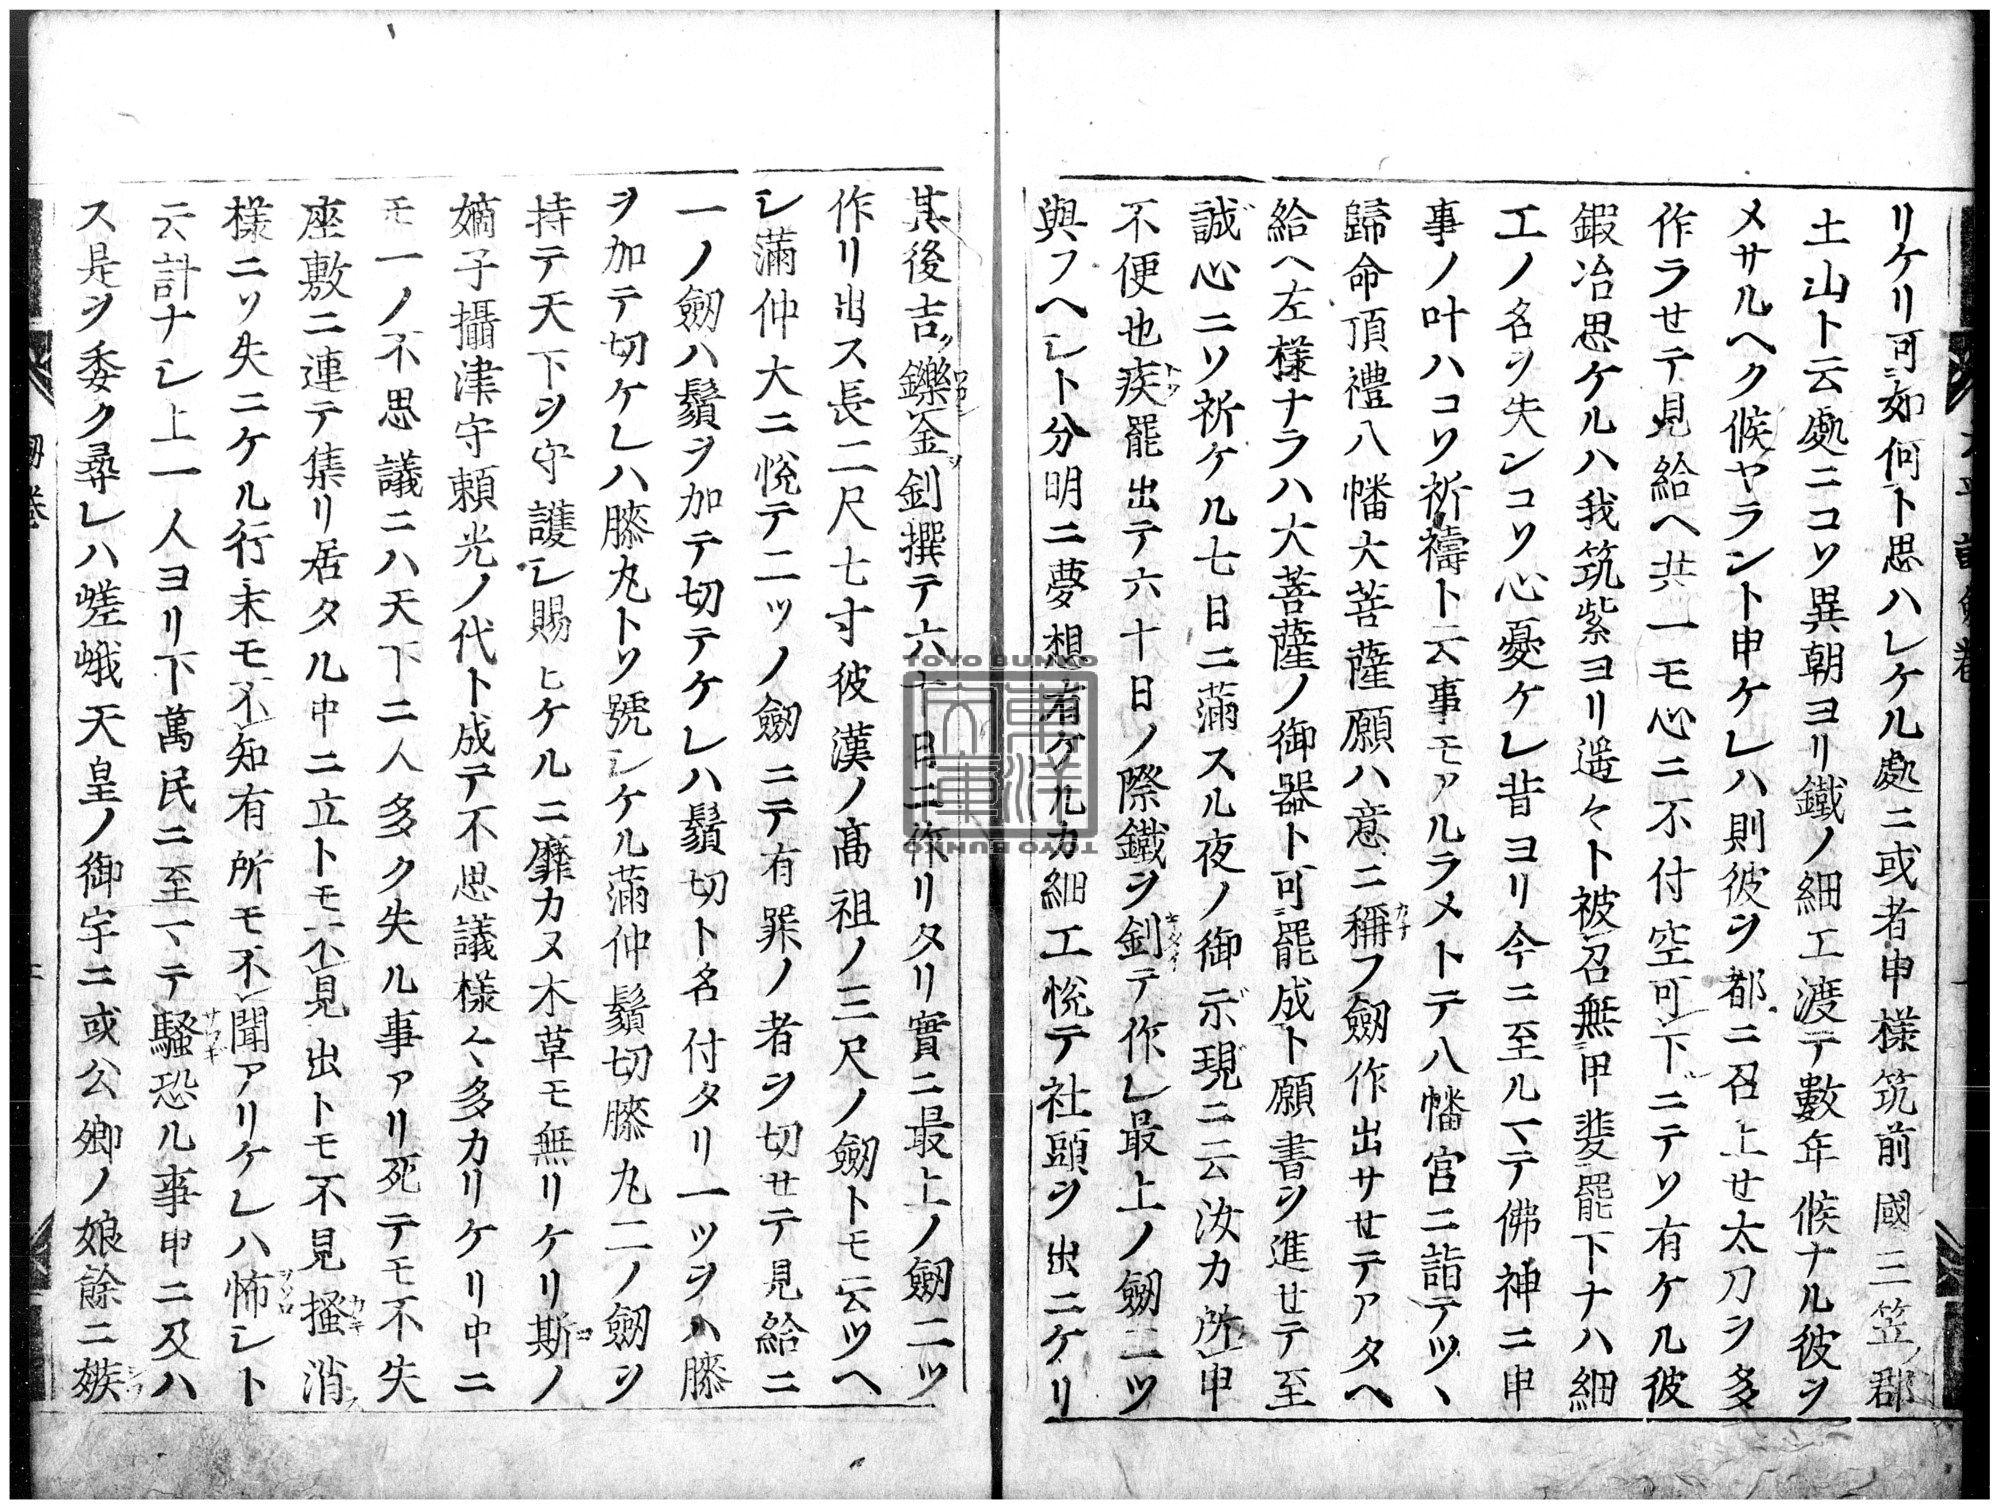 リケリ可如何ト思ハレケル處ニ或者申様筑前國三笠郡
土山ト云處ニコソ異朝ヨリ鐵ノ細工渡テ數年候ナル彼ヲ
メサルヘク候ヤラント申ケレハ則彼ヲ都ニ召上セ太刀ヲ多
作ラせテ見給ヘ共一モ心ニ不付空可下ニテソ有ケル彼
鍜冶思ケルハ我筑紫ヨリ遥々ト被召無甲斐罷下ナハ細
工ノ名ヲ失ンコソ心憂ケレ昔ヨリ今ニ至ルマテ佛神ニ申
事ノ叶ハコソ祈禱ト云事モアルラメトテ八幡宮ニ詣テツヽ
歸命頂禮八幡大菩薩願ハ意ニ稱フ劔作出サせテアタヘ
給ヘ左様ナラハ大菩薩ノ御器ト可罷成ト願書ヲ進せテ至
誠心ニソ祈ケル七日ニ滿スル夜ノ御示現ニ云汝カ所申
不便也疾罷出テ六十日ノ際鐵ヲ釗テ作レ最上ノ劔二ツ
與フヘシト分明ニ夢想有ケルカ細工悅テ社頭ヲ出ニケリ
其後吉鑠釜釗撰テ六十日ニ作リタリ實ニ最上ノ劔二ツ
作リ出ス長二尺七寸彼漢ノ髙祖ノ三尺ノ劔トモ云ツヘ
シ滿仲大ニ悅テ二ツノ劔ニテ有罪ノ者ヲ切せテ見給ニ
一ノ劔ハ鬚ヲ加テ切テケレハ鬚切ト名付タリ一ツヲハ膝
ヲ加テ切ケレハ膝丸トソ號シケル滿仲鬚切膝丸二ノ劔ヲ
持テ天下ヲ守護シ賜ヒケルニ靡カヌ木草モ無リケリ斯ノ
嫡子攝津守頼光ノ代ト成テ不思議様々多カリケリ中ニ
モ一ノ不思議ニハ天下ニ人多ク失ル事アリ死テモ不失
座敷ニ連テ集リ居タル中ニ立トモ不見出トモ不見搔消
様ニソ失ニケル行末モ不知有所モ不聞アリケレハ怖シト
云計ナシ上一人ヨリ下萬民ニ至マテ騷恐ル事申ニ及ハ
ス是ヲ委ク尋レハ嵯峨天皇ノ御宇ニ或公卿ノ娘餘ニ嫉
TOYO BUNKO
東洋文庫
TOYO BUNKO